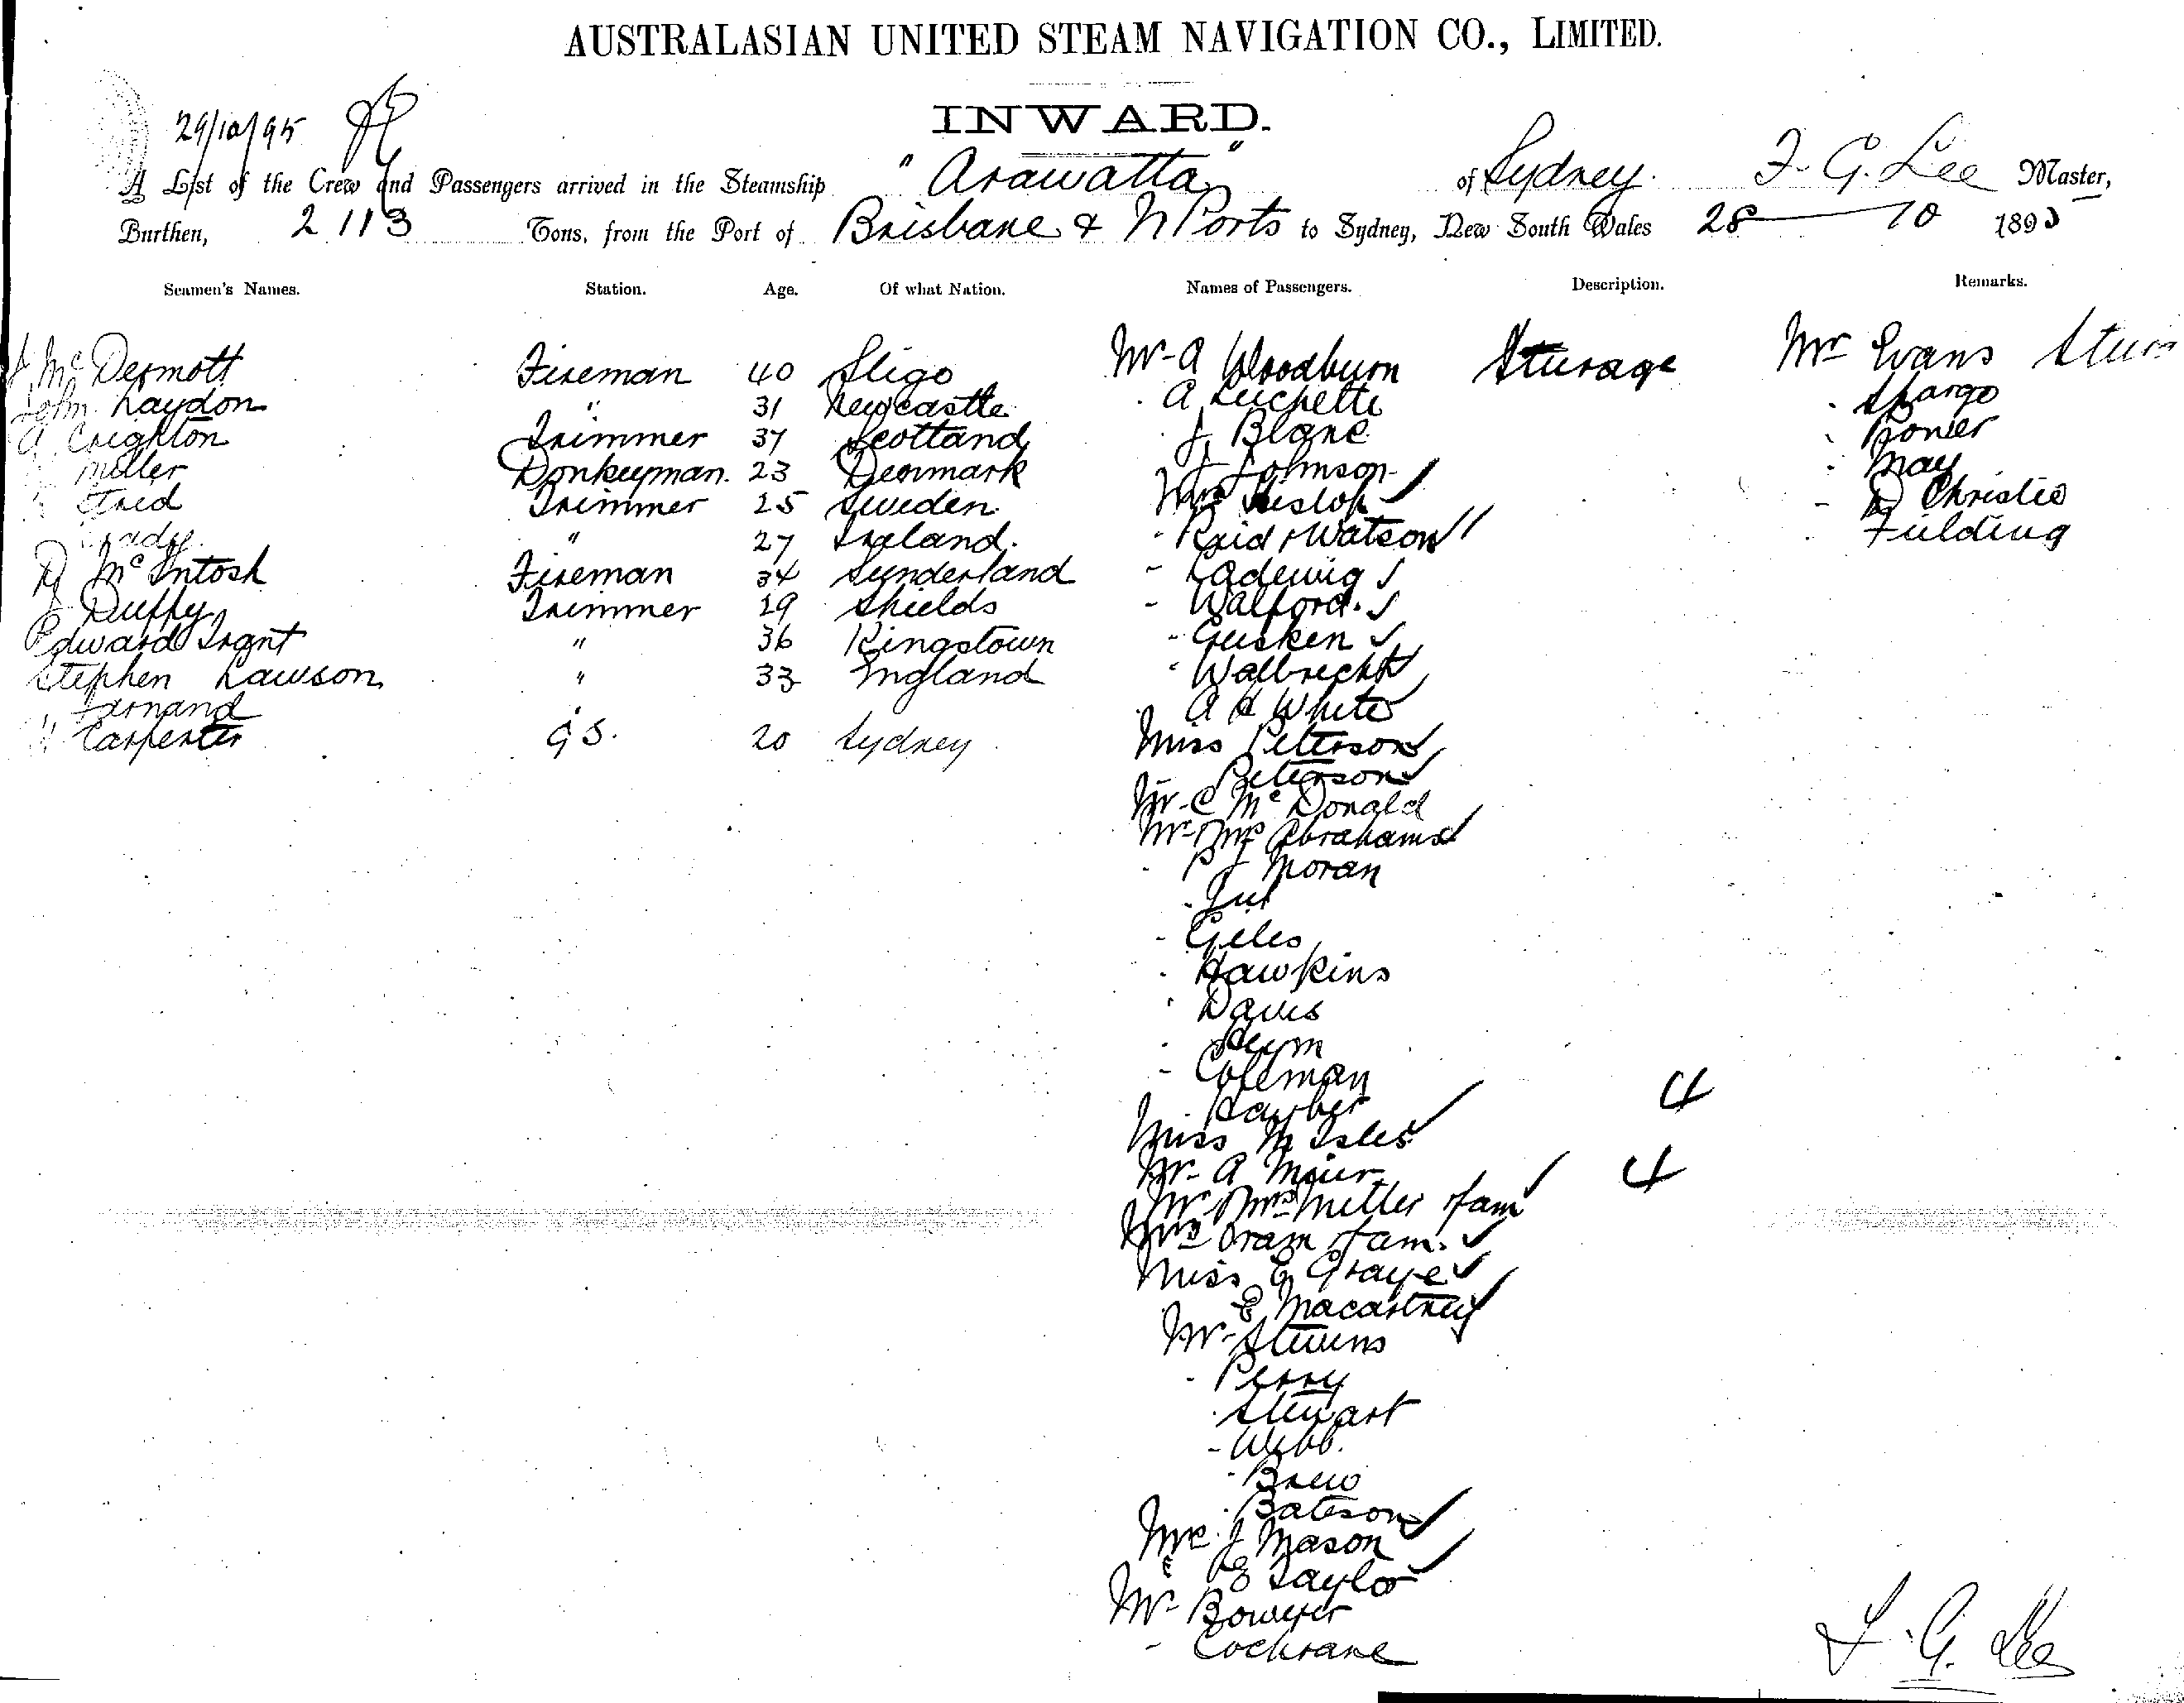 AUSTRALASIAN UNITED STEAM NAVIGATION CO., LIMITED.
INWARD.
29/10/95
A List of the Crew and Passengers arrived in the Steamship "Arawatta" of Sydney. F. G. Lee Master,
Burthen, 2113 Tons, from the Port of Brisbane & N Ports to Sydney, New South Wales 28 10 1895
Seamen's Names. Station. Age. Of what Nation. Names of Passengers. Description. Remarks.
J McDermott Fireman 40 Sligo Mr A Woodburn Sturage Mr Evans
John Laydon " 31 Newcastle A Luchetti Spargo
A Crighton Trimmer 37 Scotland J Blane
Miller Donkeyman. 23 Denmark J Johnson May
Fred Trimmer 25 Sweden Hislop D Christie
" 27 Ireland. Reid & Watson Fulding
D McIntosh Fireman 34 Sunderland Ladewig
J Duffy Trimmer 29 Shields Walford.
Edward Grant " 36 Kingstown Gusken
Stephen Lawson " 33 England Walbrecht
" Farnand A H White
" Carpenter G S. 20 Sydney Miss Peterson
Peterson
Mr C McDonald
Mr & Mrs Abrahams
P J Moran
Giles
Hawkins
Davis
Coleman
Miss M Isles
4
Mr A Meier
Mr & Mrs Miller & fam 4
Mrs Oram & fam.
Miss E Graye
E Macartney
Mr Stevens
Perry
Stewart
Webb.
Brew
Bateson
J Mason
E Taylor
Mr Bowyer
Cochrane
F. G. Lee